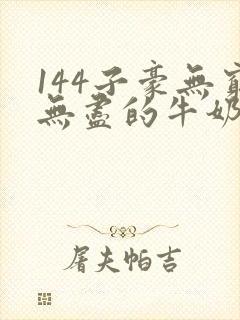 144子豪無窮
無盡的牛奶
屠夫帕吉